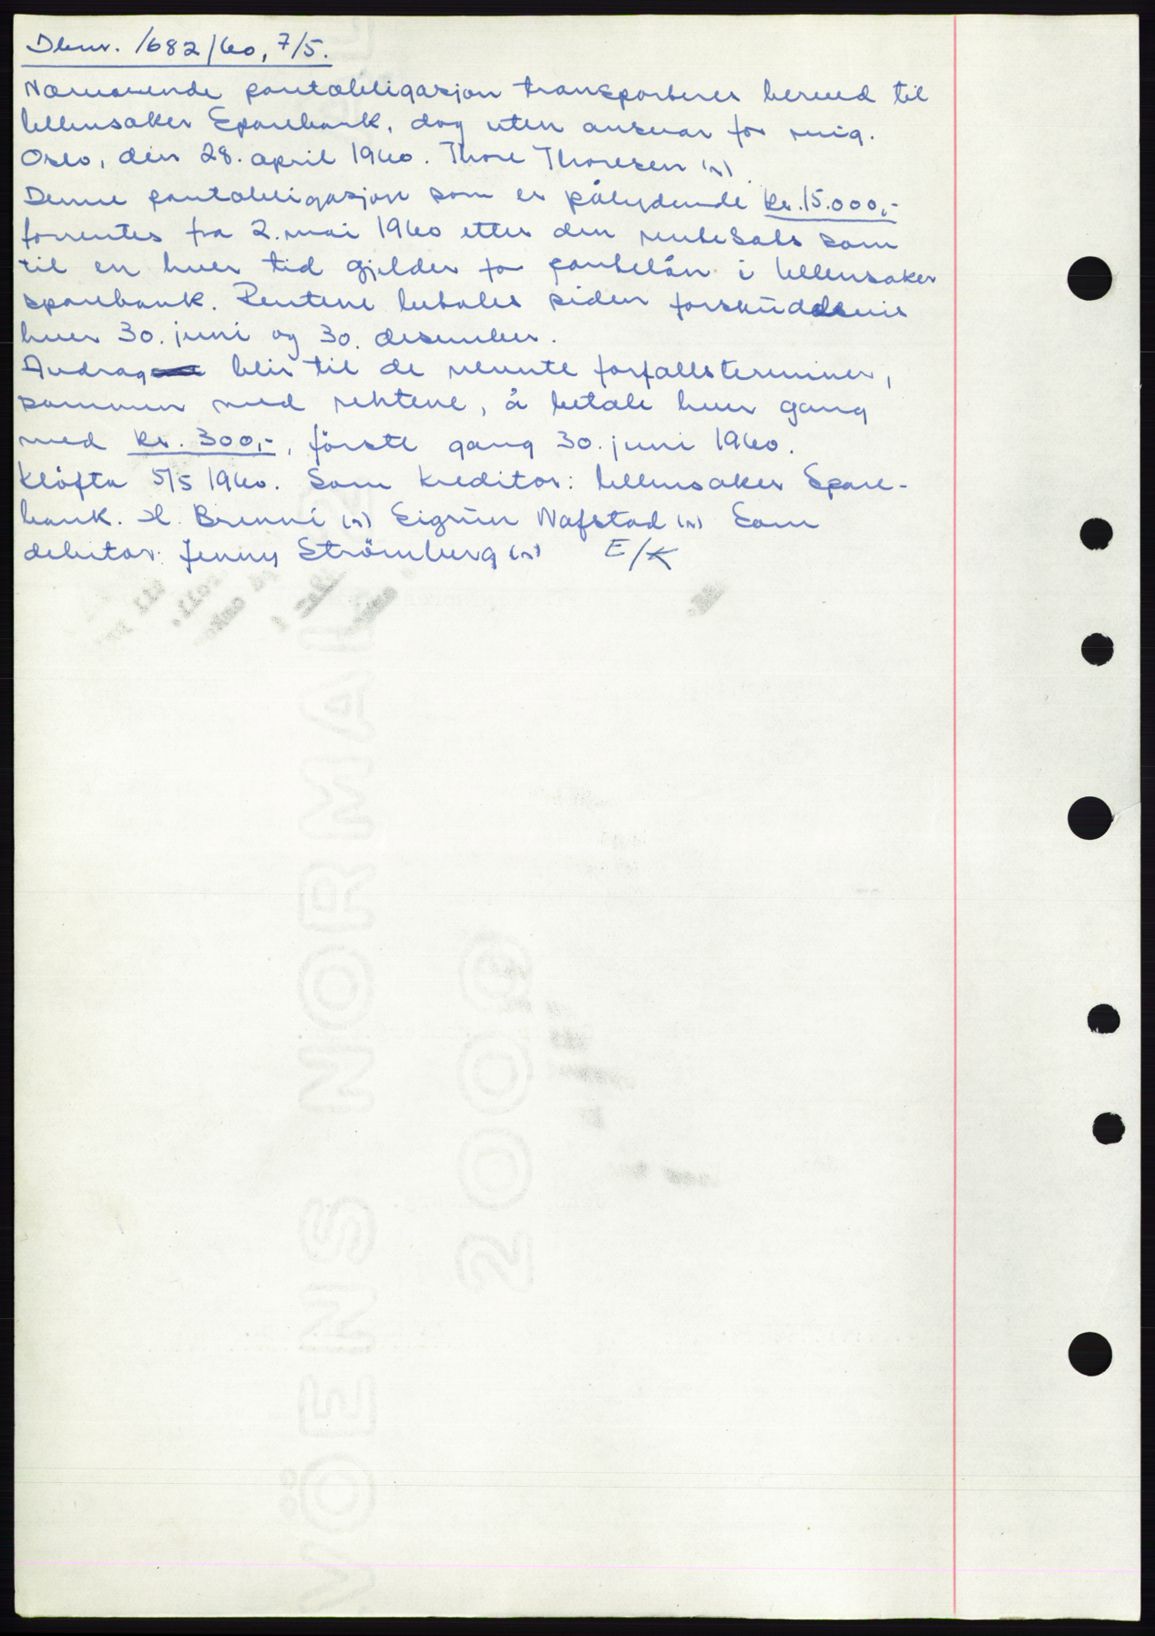 Dbnr. 1682/60, 7/5.
Nærværende pantobligasjon transporteres herved til
Ullensaker Sparebank, dog uten ansvar for mig.
Oslo, den 28. april 1960. Thore Thoresen (s)
Denne pantobligasjon som er pålydende kr. 15.000,-
forrentes fra 2. mai 1960 etter den rentesats som
til en hver tid gjelder for pantelån i Ullensaker
sparebank. Rentene betales siden forskuddsvis
hver 30. juni og 30. desember.
Avdrag blir til de nevnte forfallsterminer,
sammen med rentene, å betale hver gang
med kr. 300,-, förste gang 30. juni 1960.
Klöfta 5/5 1960. Som kreditor: Ullensaker Spare-
bank. H. Brenni (s) Sigrun Nafstad (s) Som
debitor: Jenny Strömberg (s) E/K
VÖENS NORMAL 2
2000